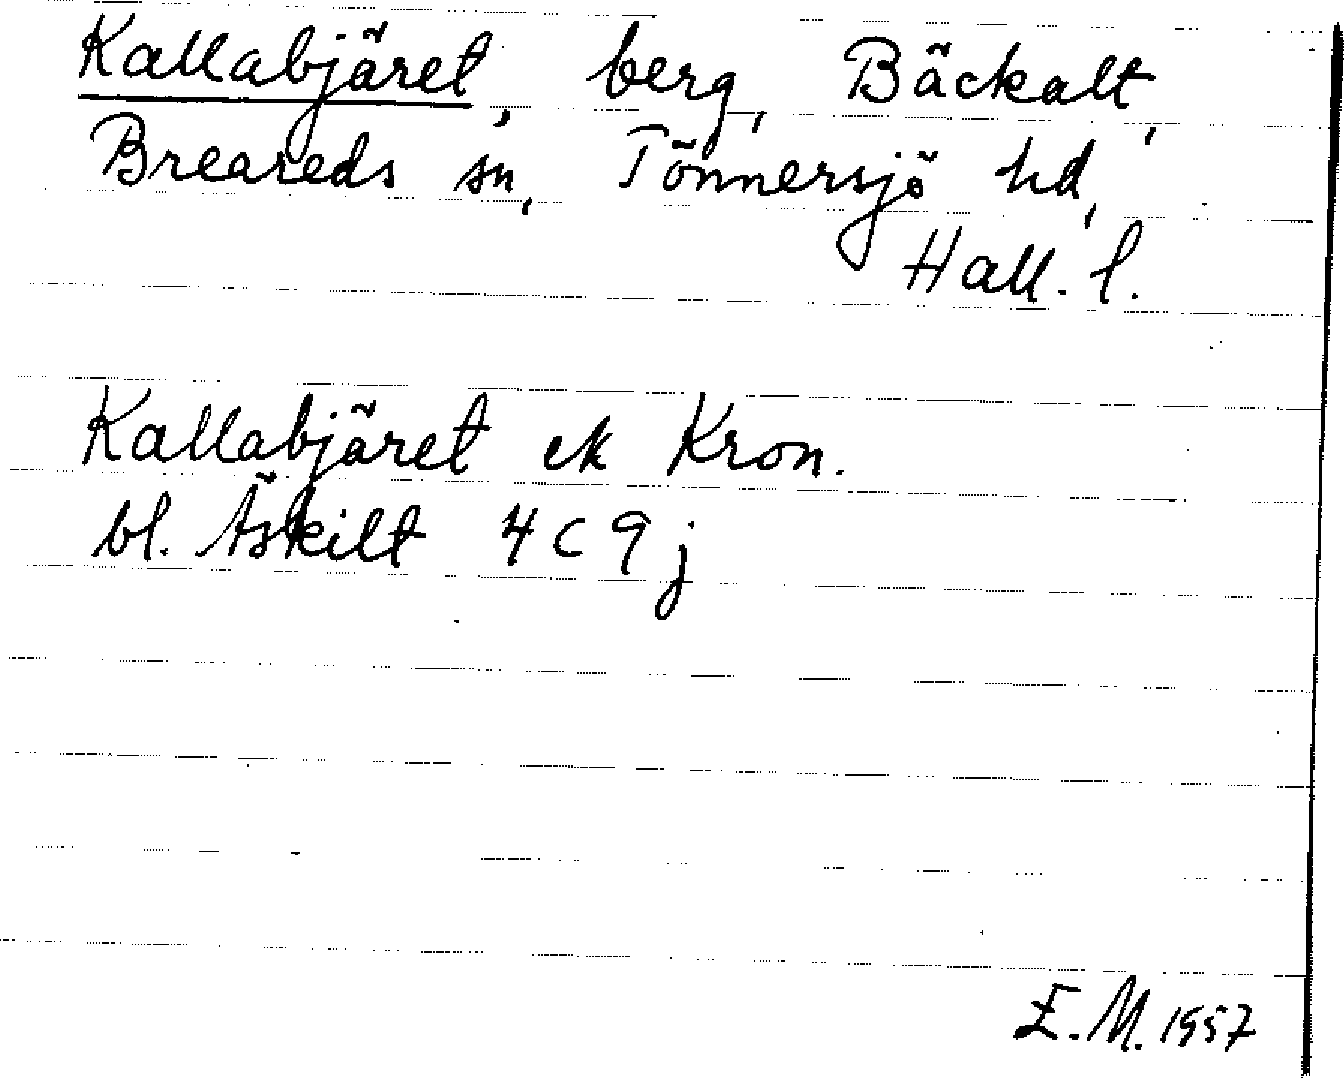 Kallabjäret, berg, Bäckalt,
Breareds sn, Tönnersjö hd,
Hall. l.
Kallabjäret ek Kron.
bl. Äskilt 4 C 9 j
E. M. 1957